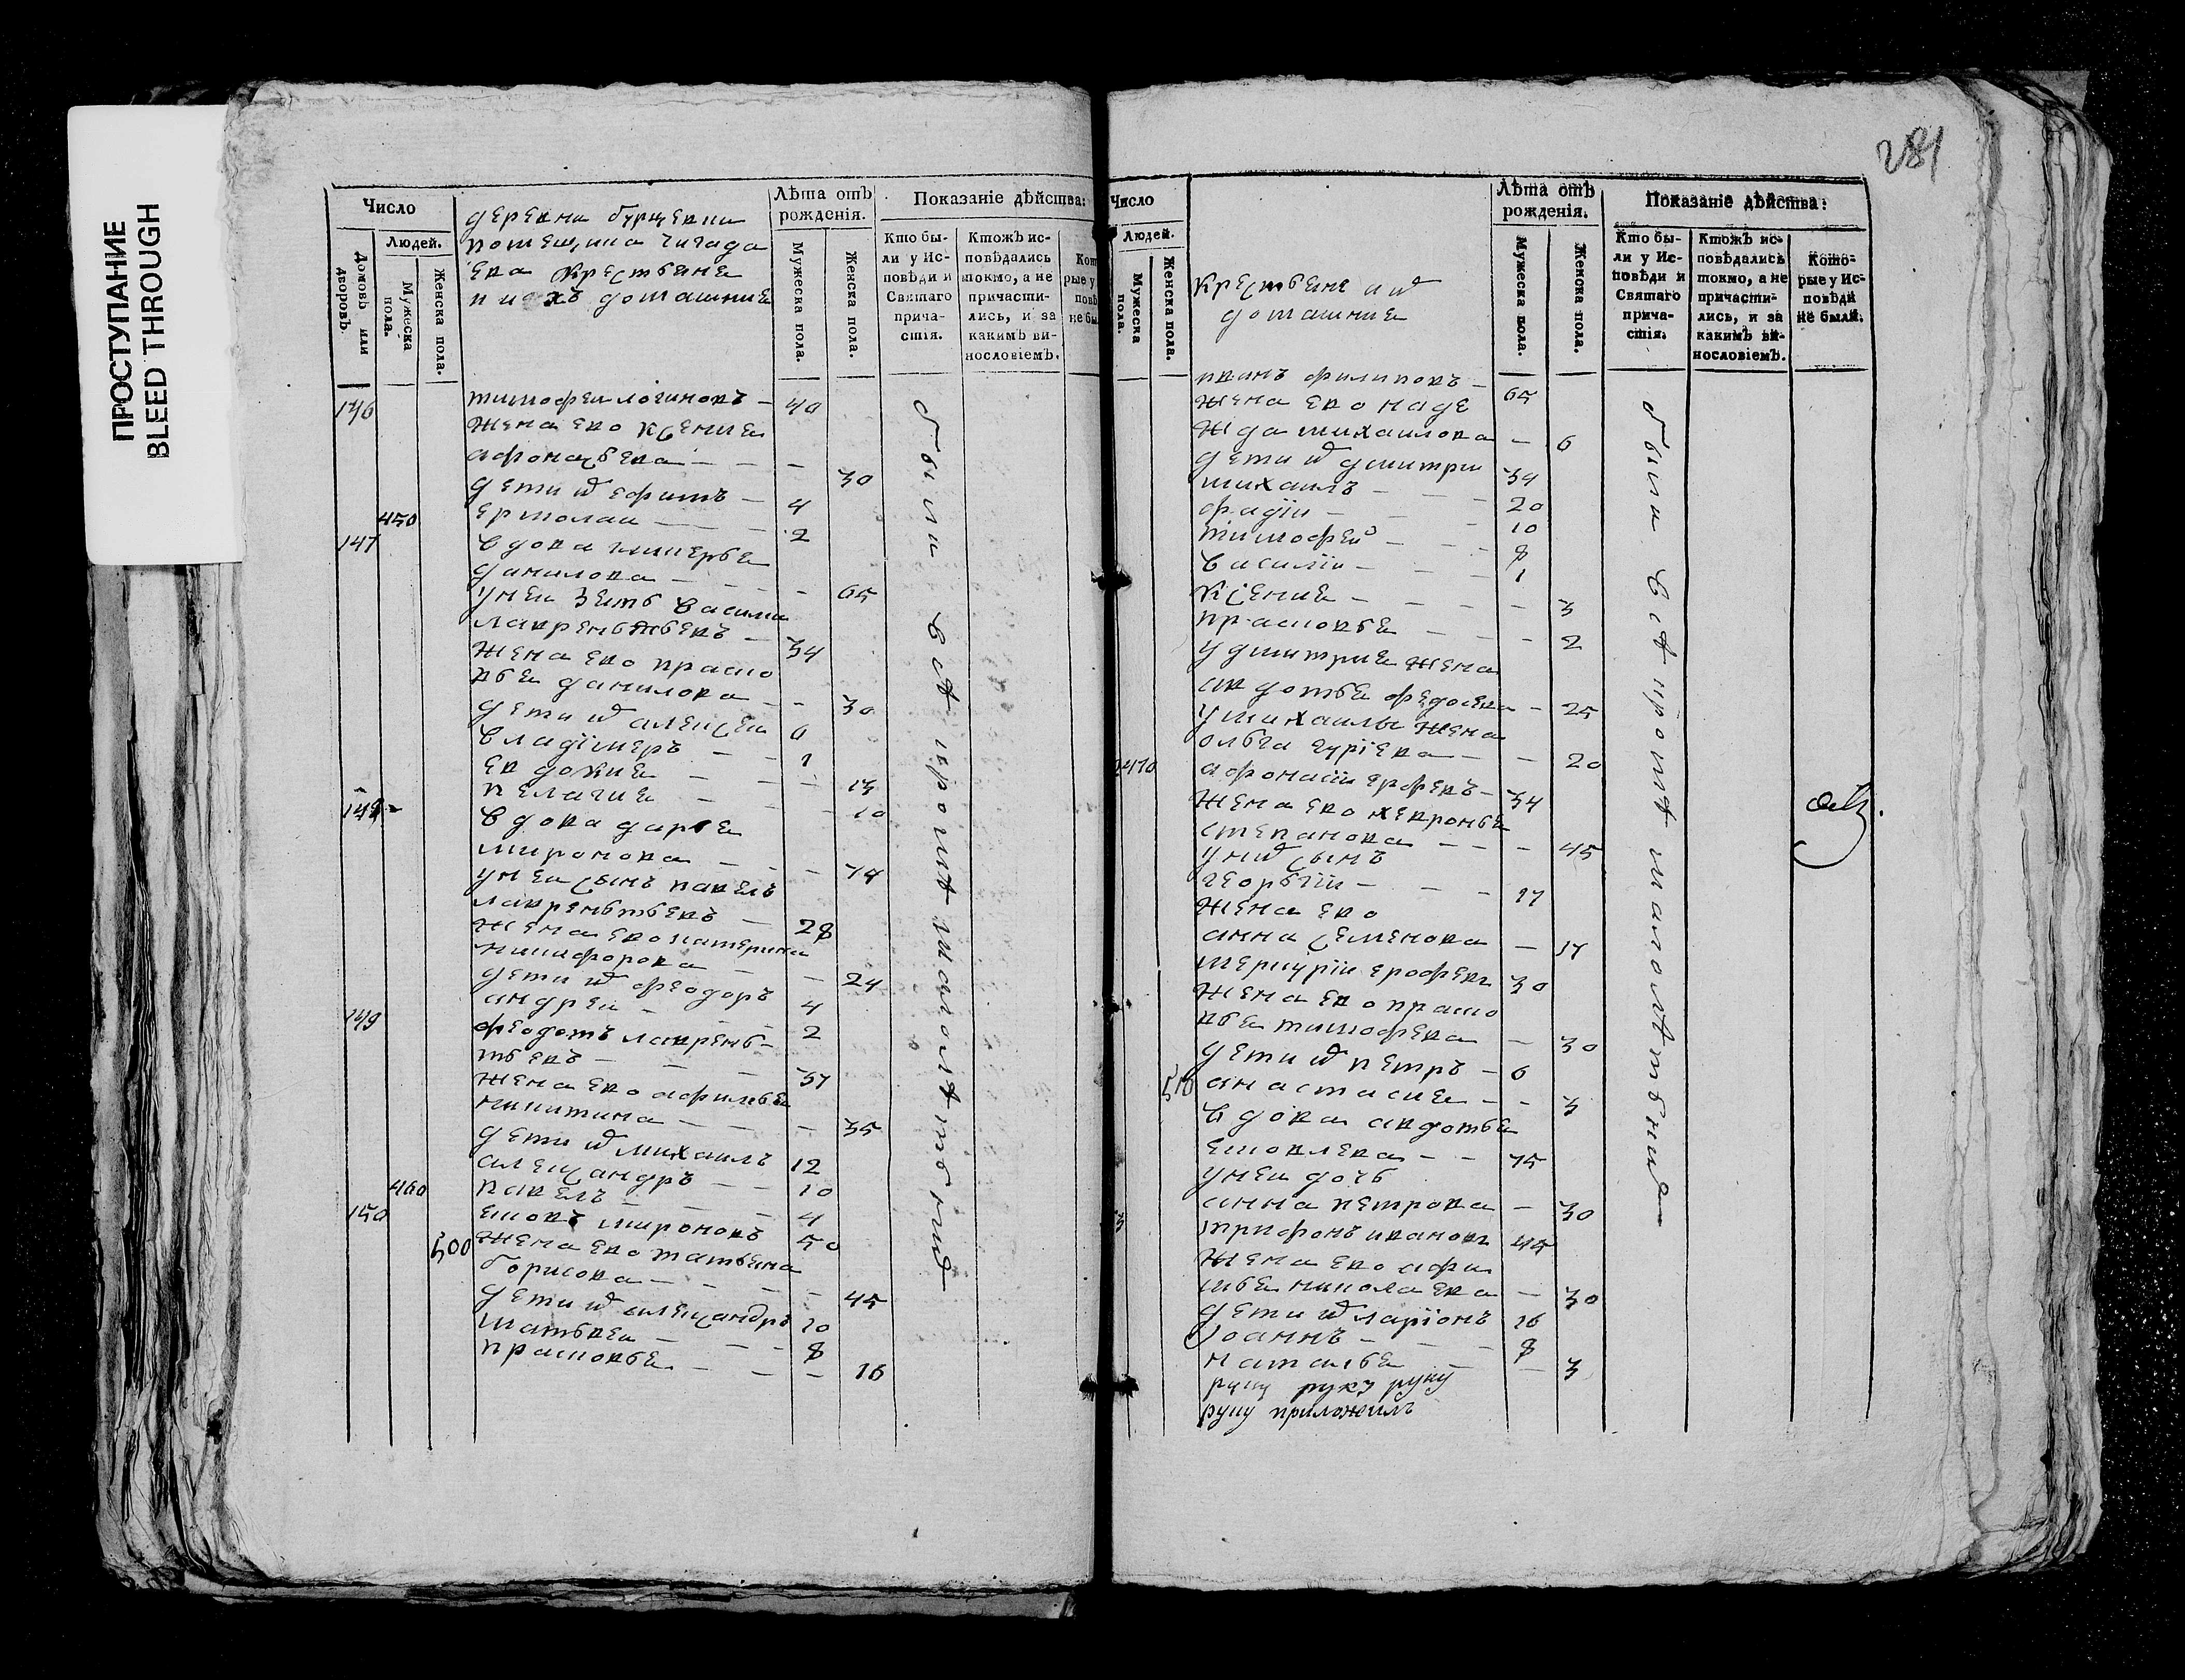 ПРОСТУПАНИЕ
BLEED THROUGH
281
Число
Людей.
Домовъ или дворовъ.
Мужеска пола.
Женска пола.
помещика
крестьяне
и ихъ домашние
Лѣта отъ рожденія.
Мужеска пола.
Женска пола.
Показаніе дѣйства:
Кто были у Исповѣди и Святаго причастія.
Ктожъ исповѣдались токмо, а не причастились, и за какимъ винословіемъ.
146 тимофеи логиновъ - 40
жена ево ксения
афонасьева - - - 30
дети их ефимъ - 4
450 ермолаи - - - 2
147 вдова гликерья
данилова - - - 65
у неи зеть васили
лаврентьевъ - 34
жена ево праско
вья данилова - - 30
дети их алексеи 6
владїмеръ - - 1
евдокия - - - 13
пелагия - - - 10
148 вдова дарья
миронова - - - 74
у неи сынъ павелъ
лаврентьевъ - 28
жена ево катерина
никифорова - - 24
дети их феодоръ 4
андреи - - - 2
149 феодотъ лаврень-
тьевъ - - - 37
жена ево
никитина - - - 35
дети их михаилъ 12
александръ - - 10
460 павелъ - - - 4
150 яковъ мироновъ 50
500 жена ево татьяна
борисова - - - 45
дети их александръ 10
матвеи - - - 8
прасковья - - - 16
были
всѣ кромѣ малолѣтныхъ
Число
Людей.
Мужеска пола.
Женска пола.
крестьяне их
домашние
Лѣта отъ рожденія.
Мужеска пола.
Женска пола.
Показаніе дѣйства:
Кто были у Исповѣди и Святаго причастія.
Ктожъ исповѣдались токмо, а не причастились, и за какимъ винословіемъ.
Которые у Исповѣди не были.
иванъ филиповъ - 65
жена ево наде
жда михаилова - 6
дети их димитри 34
михаилъ - - - 20
фадїи - - - 10
тимофеи - - - 8
василїи - - - 1
ксения - - - - 3
прасковья - - - 2
у димитрия жена
авдотья федосева - 25
у михаилы жена
ольга гурїева - - 20
470 афонасїи ерофевъ - 34
жена ево хевронья
степанова - - - 45
у них сынъ
георгїи - - - 17
жена ево
анна семенова - 17
меркурїи ерофевъ 30
жена ево праско
вья тимофева - 30
дети их петръ - 6
510 анастасия - - 3
вдова авдотья
яковлева - - 75
у неи дочь
анна петрова - 30
трифонъ ивановъ 45
жена ево
николаева - 30
дети их ларїонъ 16
Иоаннъ - - 8
наталья - - 3
руку руку руку
руку приложилъ
были всѣ кромѣ малолѣтныхъ